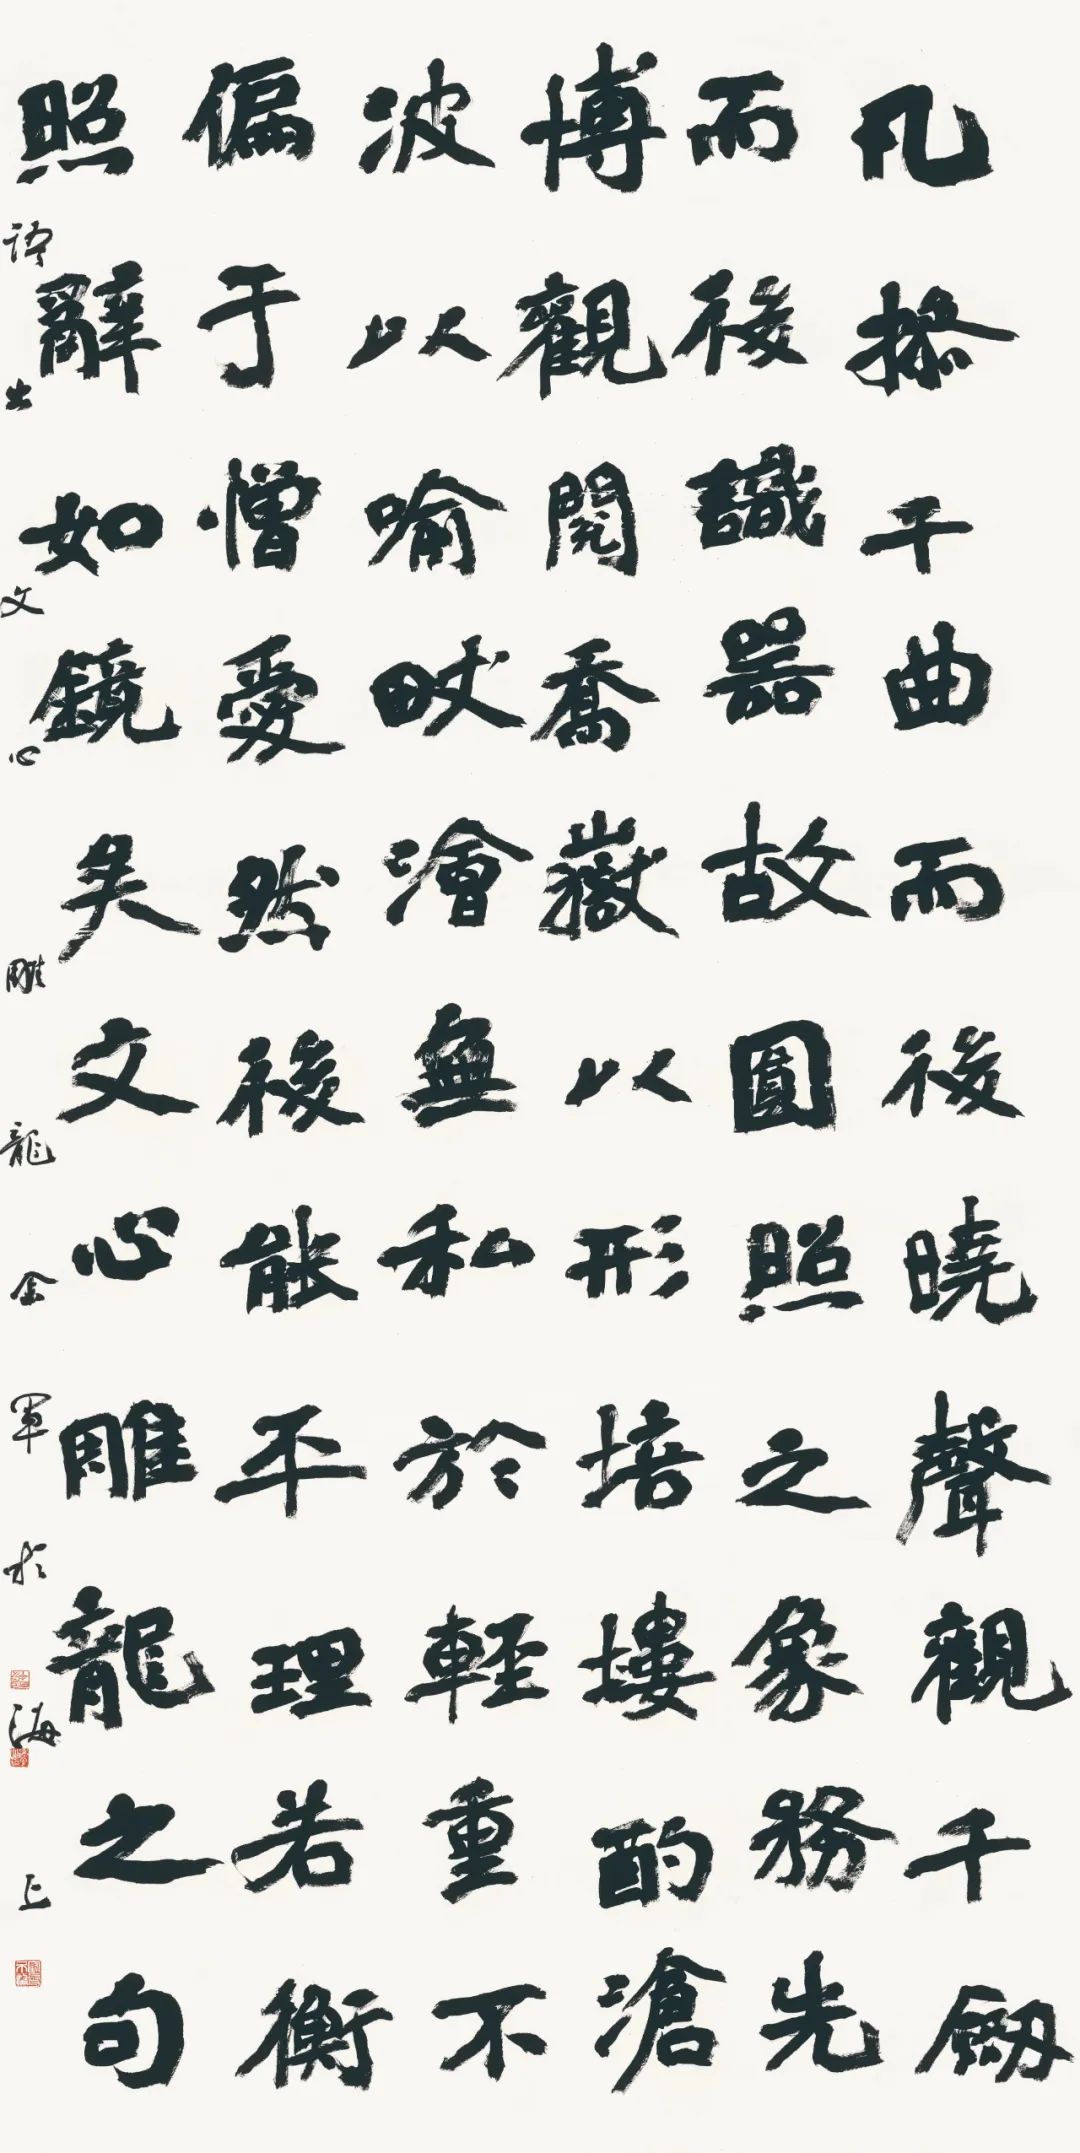 凡操千曲而後曉聲觀千劔
而後識器故圓照之象務先
博觀閱喬嶽以形培塿酌滄
波以喻畎澮無私於輕重不
偏于憎愛然後能平理若衡
照辭如鏡矣文心雕龍之句
出文心雕龍金軍於海上